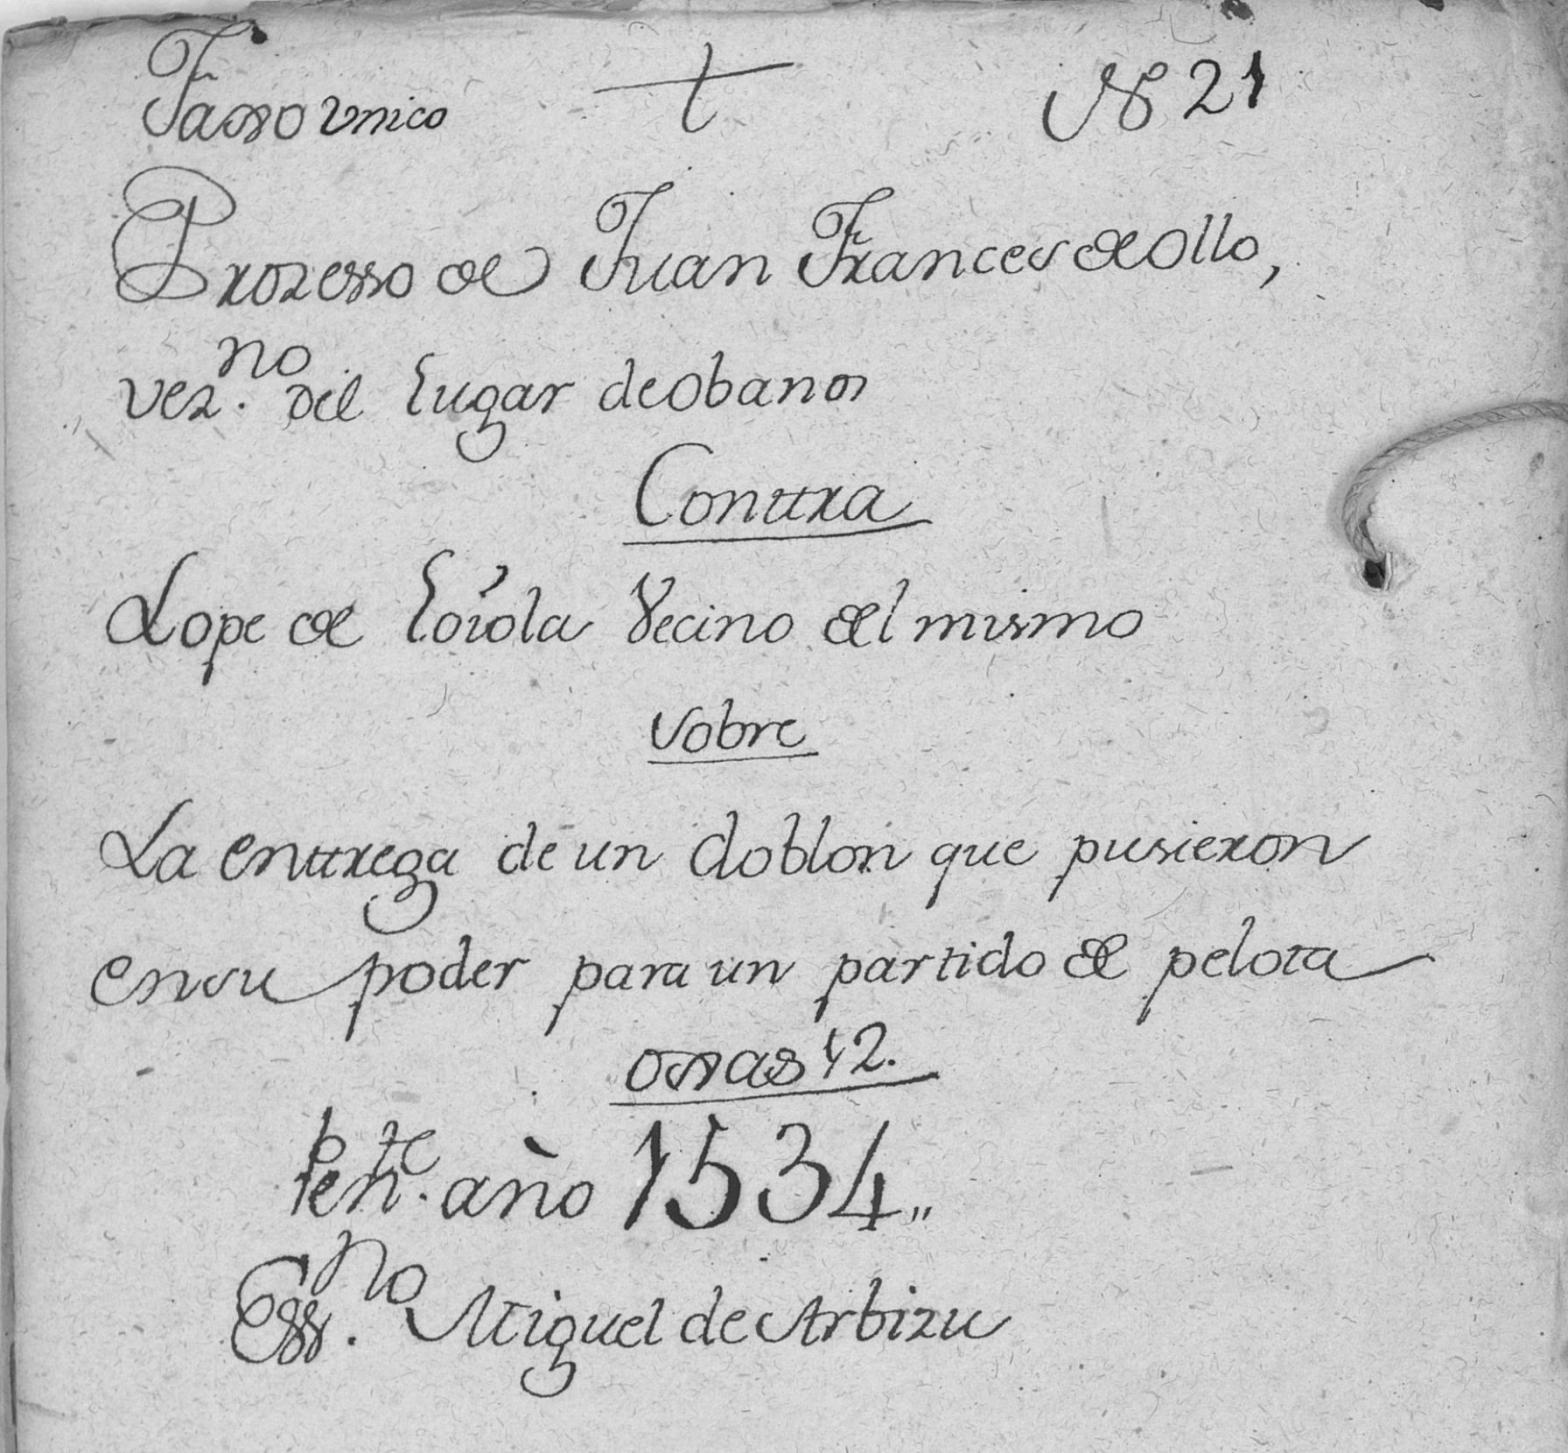 Faxo Vnico + N 21
Prozesso de Juan Frances de Ollo,
vez.no del Lugar de Obanos
Conttra
Lope de Loiola Vecino del mismo
sobre
La enttrega de un doblon que pusieron
en su poder para un partido de pelota
ojas 12.
Pen.te año 1534,,
Ess.no Miguel de Arbizu